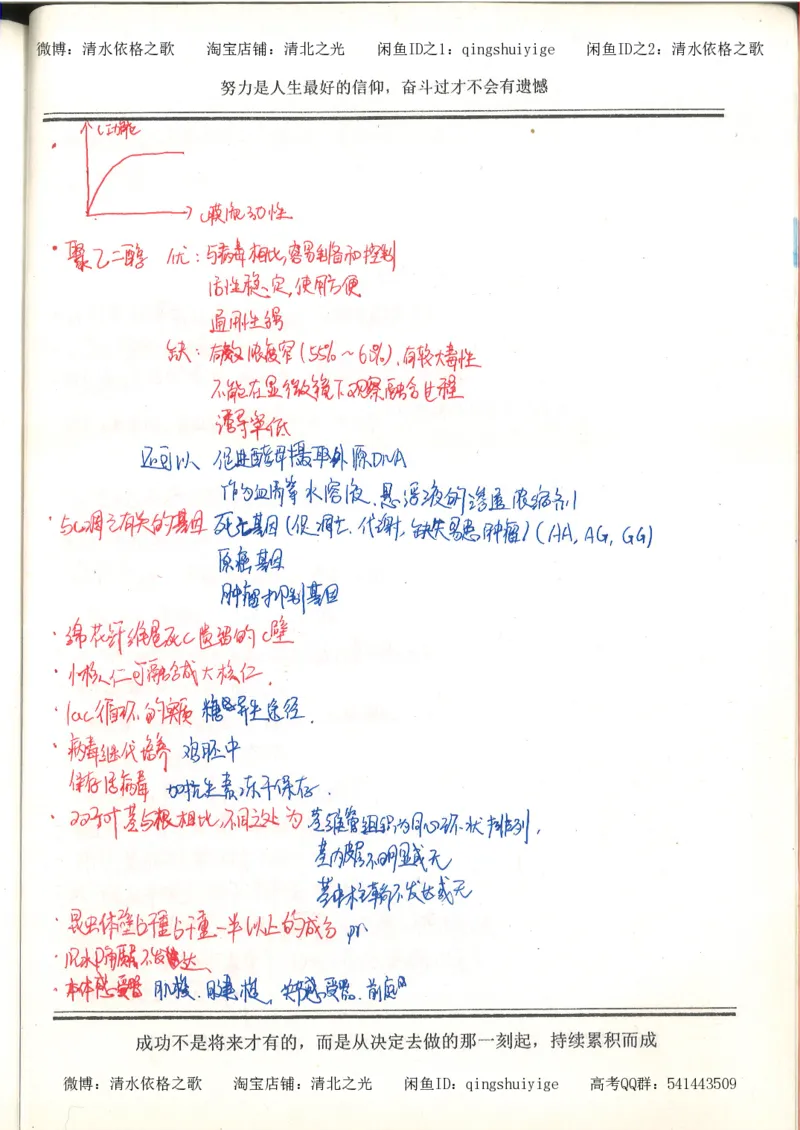 微博：清水依格之歌　　淘宝店铺：清北之光　　闲鱼ID之1：qingshuiyige　　闲鱼ID之2：清水依格之歌
努力是人生最好的信仰，奋斗过才不会有遗憾
c功能
c膜流动性
聚乙二醇 优：与病毒相比，容易制备和控制
活性稳定，使用方便
通用性强
缺：有效浓度窄（55%～60%），有较大毒性
不能在显微镜下观察融合过程
诱导率低
还可以 促进酵母摄取外源DNA
作为血清等水溶液、悬浮液的渗透浓缩剂
与c凋亡有关的基因 死亡基因（促凋亡、代谢，缺失易患肿瘤）（AA，AG，GG）
原癌基因
肿瘤抑制基因
绵花纤维是死c遗留的c壁
小核仁可融合成大核仁．
lac循环的实质 糖异生途径．
病毒继代培养 鸡胚中
保存活病毒 加抗生素冻干保存．
双子叶茎与根相比，不同之处为 茎维管组织为同心环状排列，
茎内皮层不明显或无
茎中柱鞘不发达或无
昆虫体壁占干重一半以上的成分 pr
本体感受器 肌梭、腱梭、关节感受器、前庭
成功不是将来才有的，而是从决定去做的那一刻起，持续累积而成
微博：清水依格之歌　　淘宝店铺：清北之光　　闲鱼ID：qingshuiyige　　高考QQ群：541443509